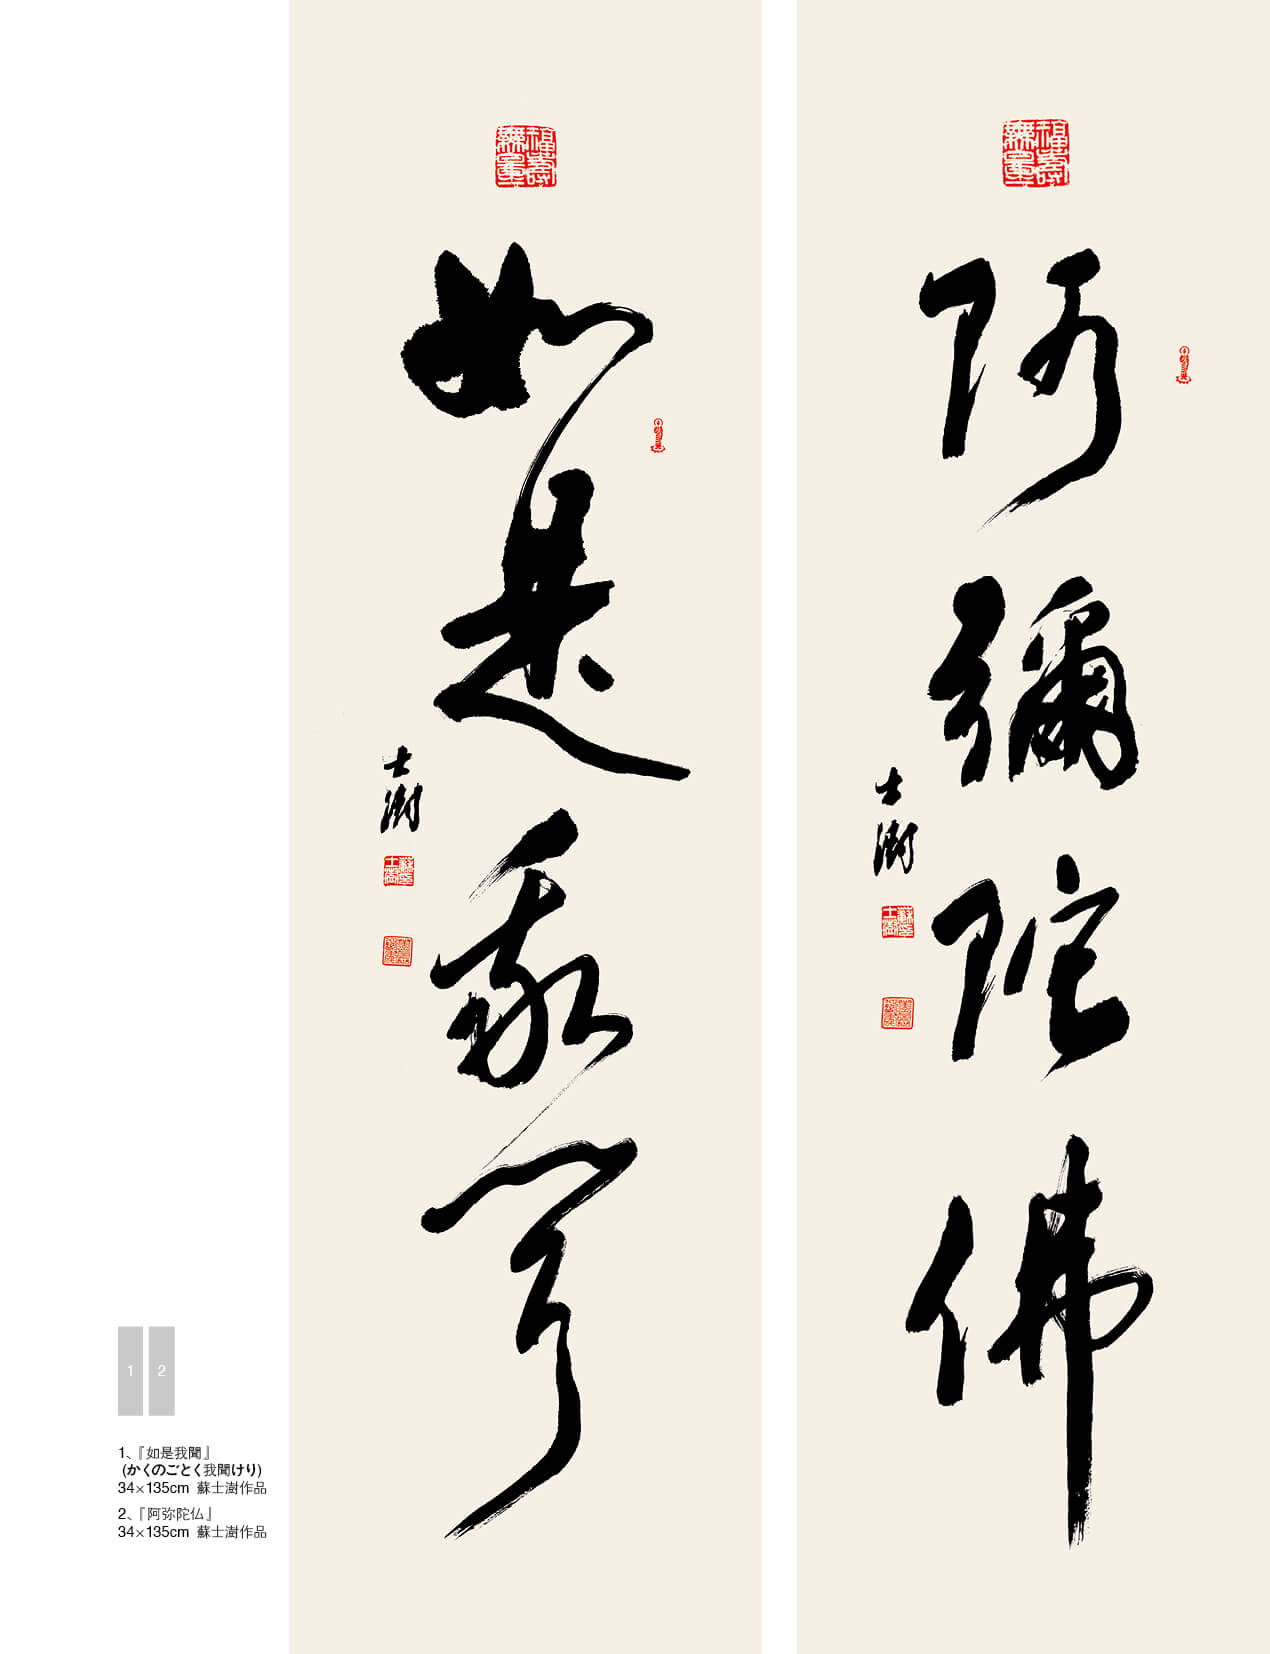 如是我聞
士澍
阿彌陀佛
士澍
1 2
1、『如是我聞』
(かくのごとく我聞けり)
34×135cm 蘇士澍作品
2、『阿弥陀仏』
34×135cm 蘇士澍作品